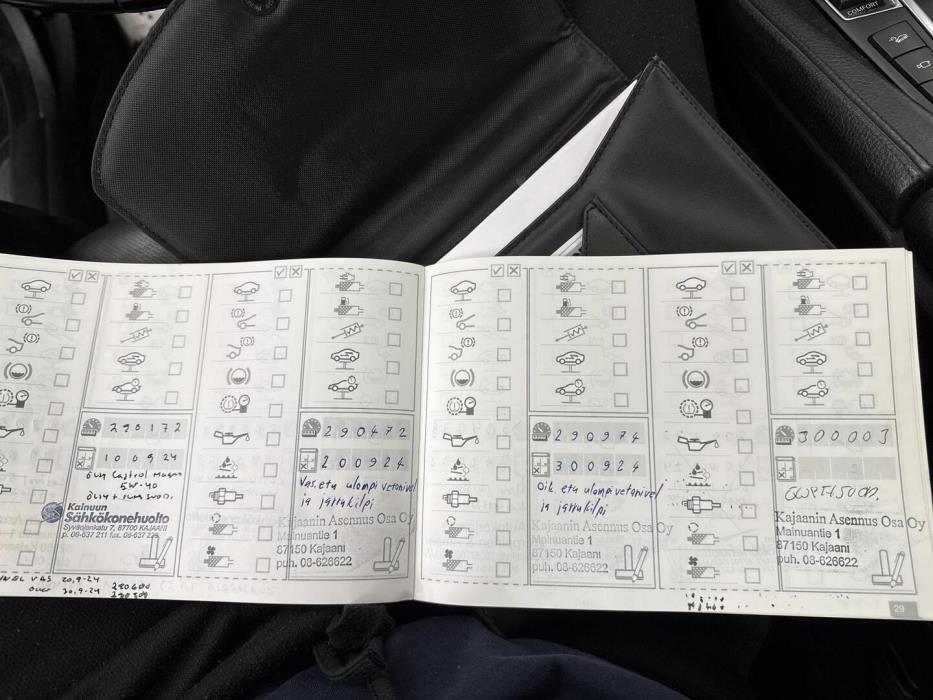 COMFORT
290172
100924
öljy Castrol Magna
5W-40
öljynsuod.
Kainuun
Sähkökonehuolto
Syväojankatu 7, 87700 KAJAANI
p. 08-637 211 fax. 08-637
VAS 20.9-24 290600
20.9.24
290472
200924
Vas. etu ulompi vetonivel
ja jarrukilpi
Kajaanin Asennus Osa Oy
Mainuantie 1
87150 Kajaani
puh. 08-626622
290974
300924
Oik. etu ulompi vetonivel
ja jarrukilpi
Kajaanin Asennus Osa Oy
Mainuantie 1
87150 Kajaani
puh. 08-626622
300003
Kajaanin Asennus Osa Oy
Mainuantie 1
87150 Kajaani
puh. 08-626622
29